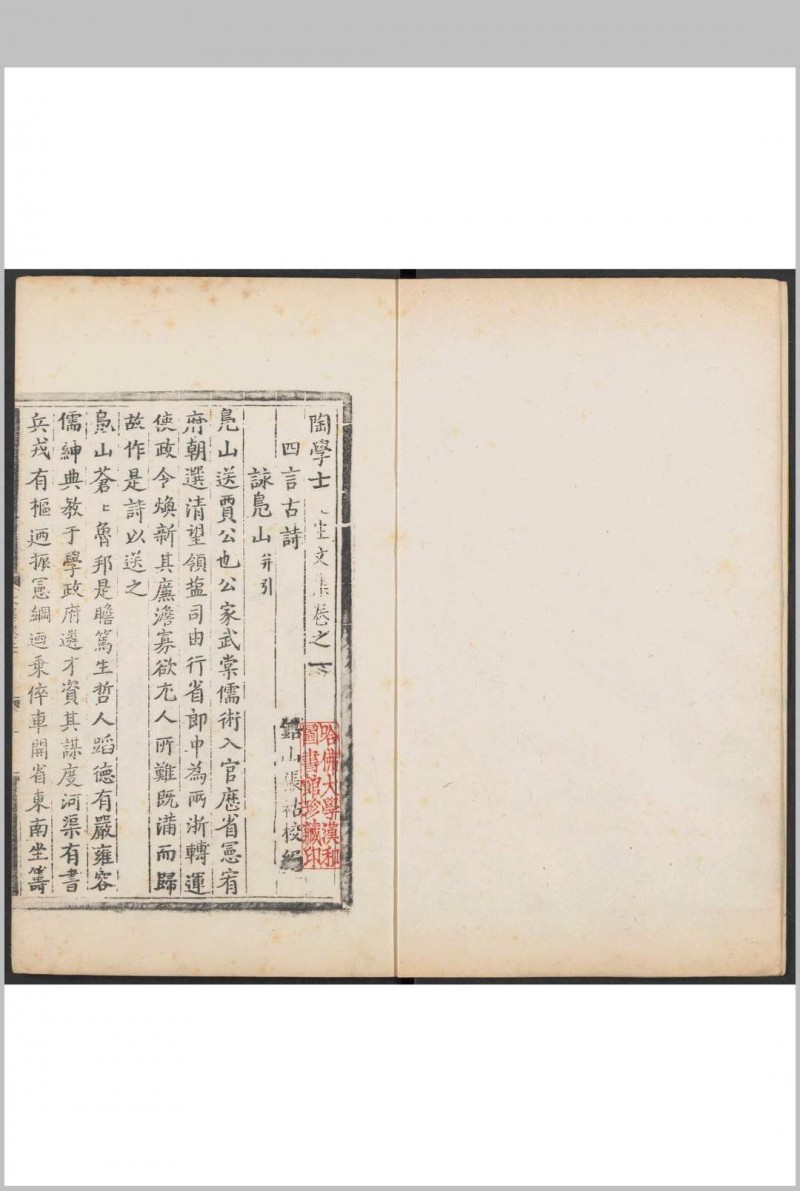 陶學士先生文集卷之一
四言古詩
鉛山張祐校編
詠鳧山并引
鳧山送賈公也公家武棠儒術入官歷省憲宥
府朝選清望領鹽司由行省郎中為兩浙轉運
使政令煥新其廉澹寡欲尤人所難既滿而歸
故作是詩以送之
鳧山蒼〻魯邦是瞻篤生哲人蹈德有嚴雍容
儒紳典教于學政府遴才資其謀度河渠有書
兵戎有樞迺振憲綱迺乗倅車開省東南坐籌
哈佛大學漢和
圖書館珍藏印